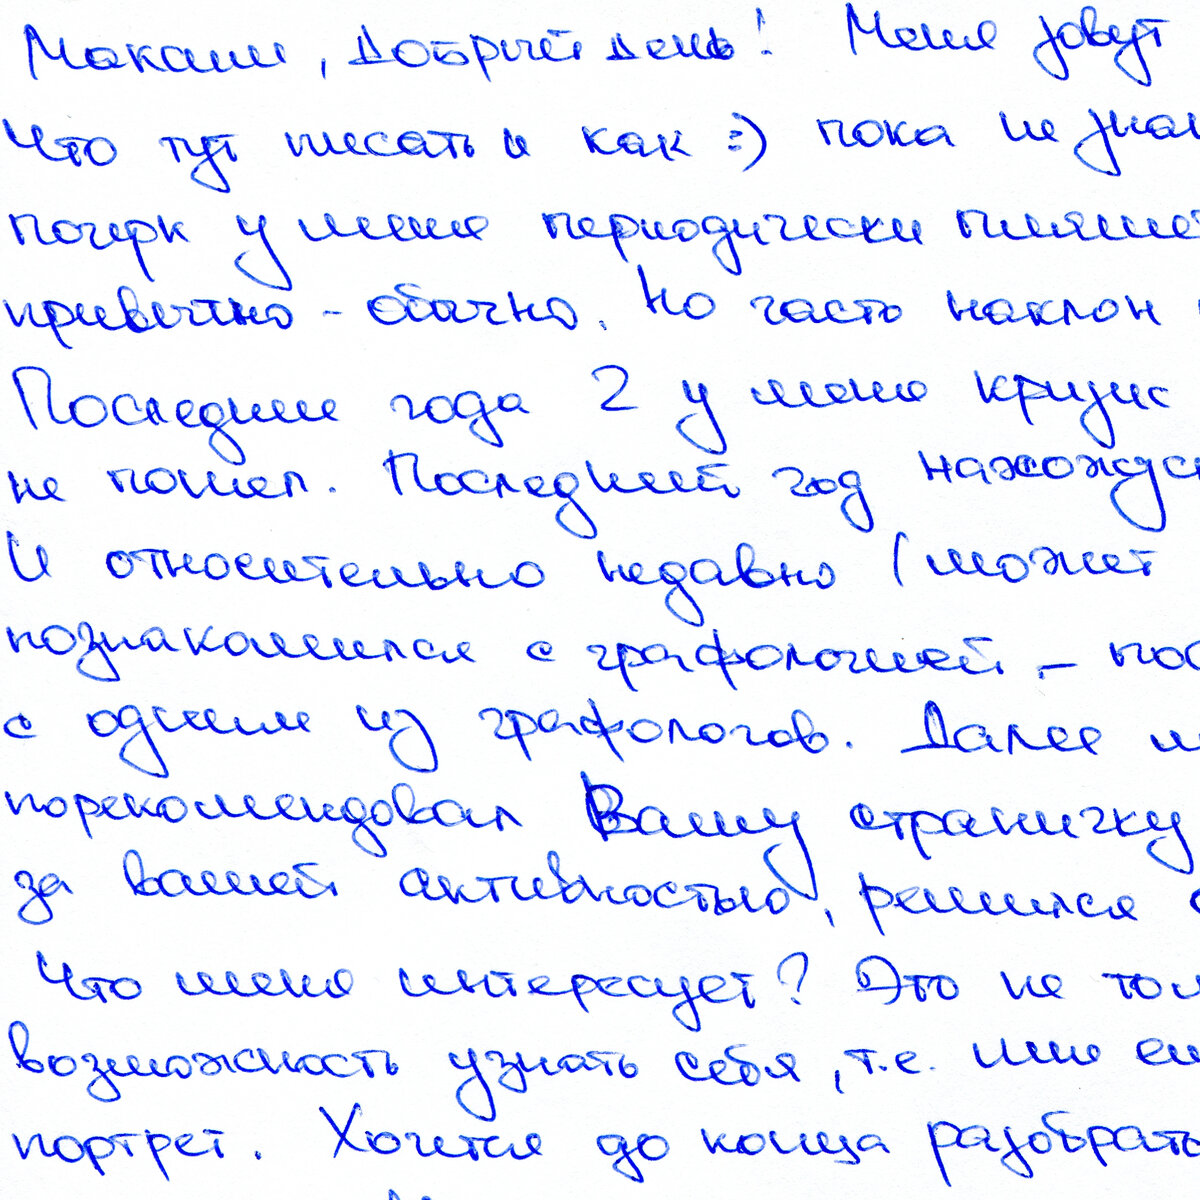 Максим, Добрый день! Меня зовут
Что тут писать и как :) пока не знаю
почерк у меня периодически меняет
привычно - обычно. Но часто наклон
Последние года 2 у меня кризис
не пошел. Последний год нахожусь
И относительно недавно (может
познакомился с графологией -
с одним из графологов. Далее
порекомендовал Вашу страничку
за вашей активностью, решился
Что меня интересует? Это не тол
возможность узнать себя, т.е.
портрет. Хочется до конца разобрать